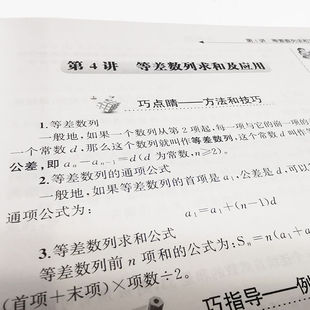 第1讲 等差数列求和
第4讲 等差数列求和及应用
巧点晴——方法和技巧
1.等差数列
一般地,如果一个数列从第2项起,每一项与它的前一项的
一个常数d,那么这个数列就叫作等差数列,这个常数d叫作等
公差,即aₙ-aₙ₋₁=d(d为常数,n≥2)。
2.等差数列的通项公式
一般地,如果等差数列的首项是a₁,公差是d,可以
通项公式为:
a₁=a₁+(n-1)d
3.等差数列求和公式
等差数列前n项和的公式为:Sₙ=n(a₁+a
(首项+末项)×项数÷2。
巧指导——例